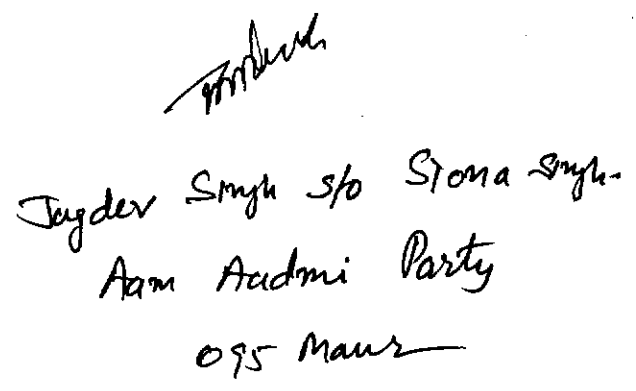 Jagdev Singh s/o Siona Singh.
Aam Aadmi Party
095 Maur